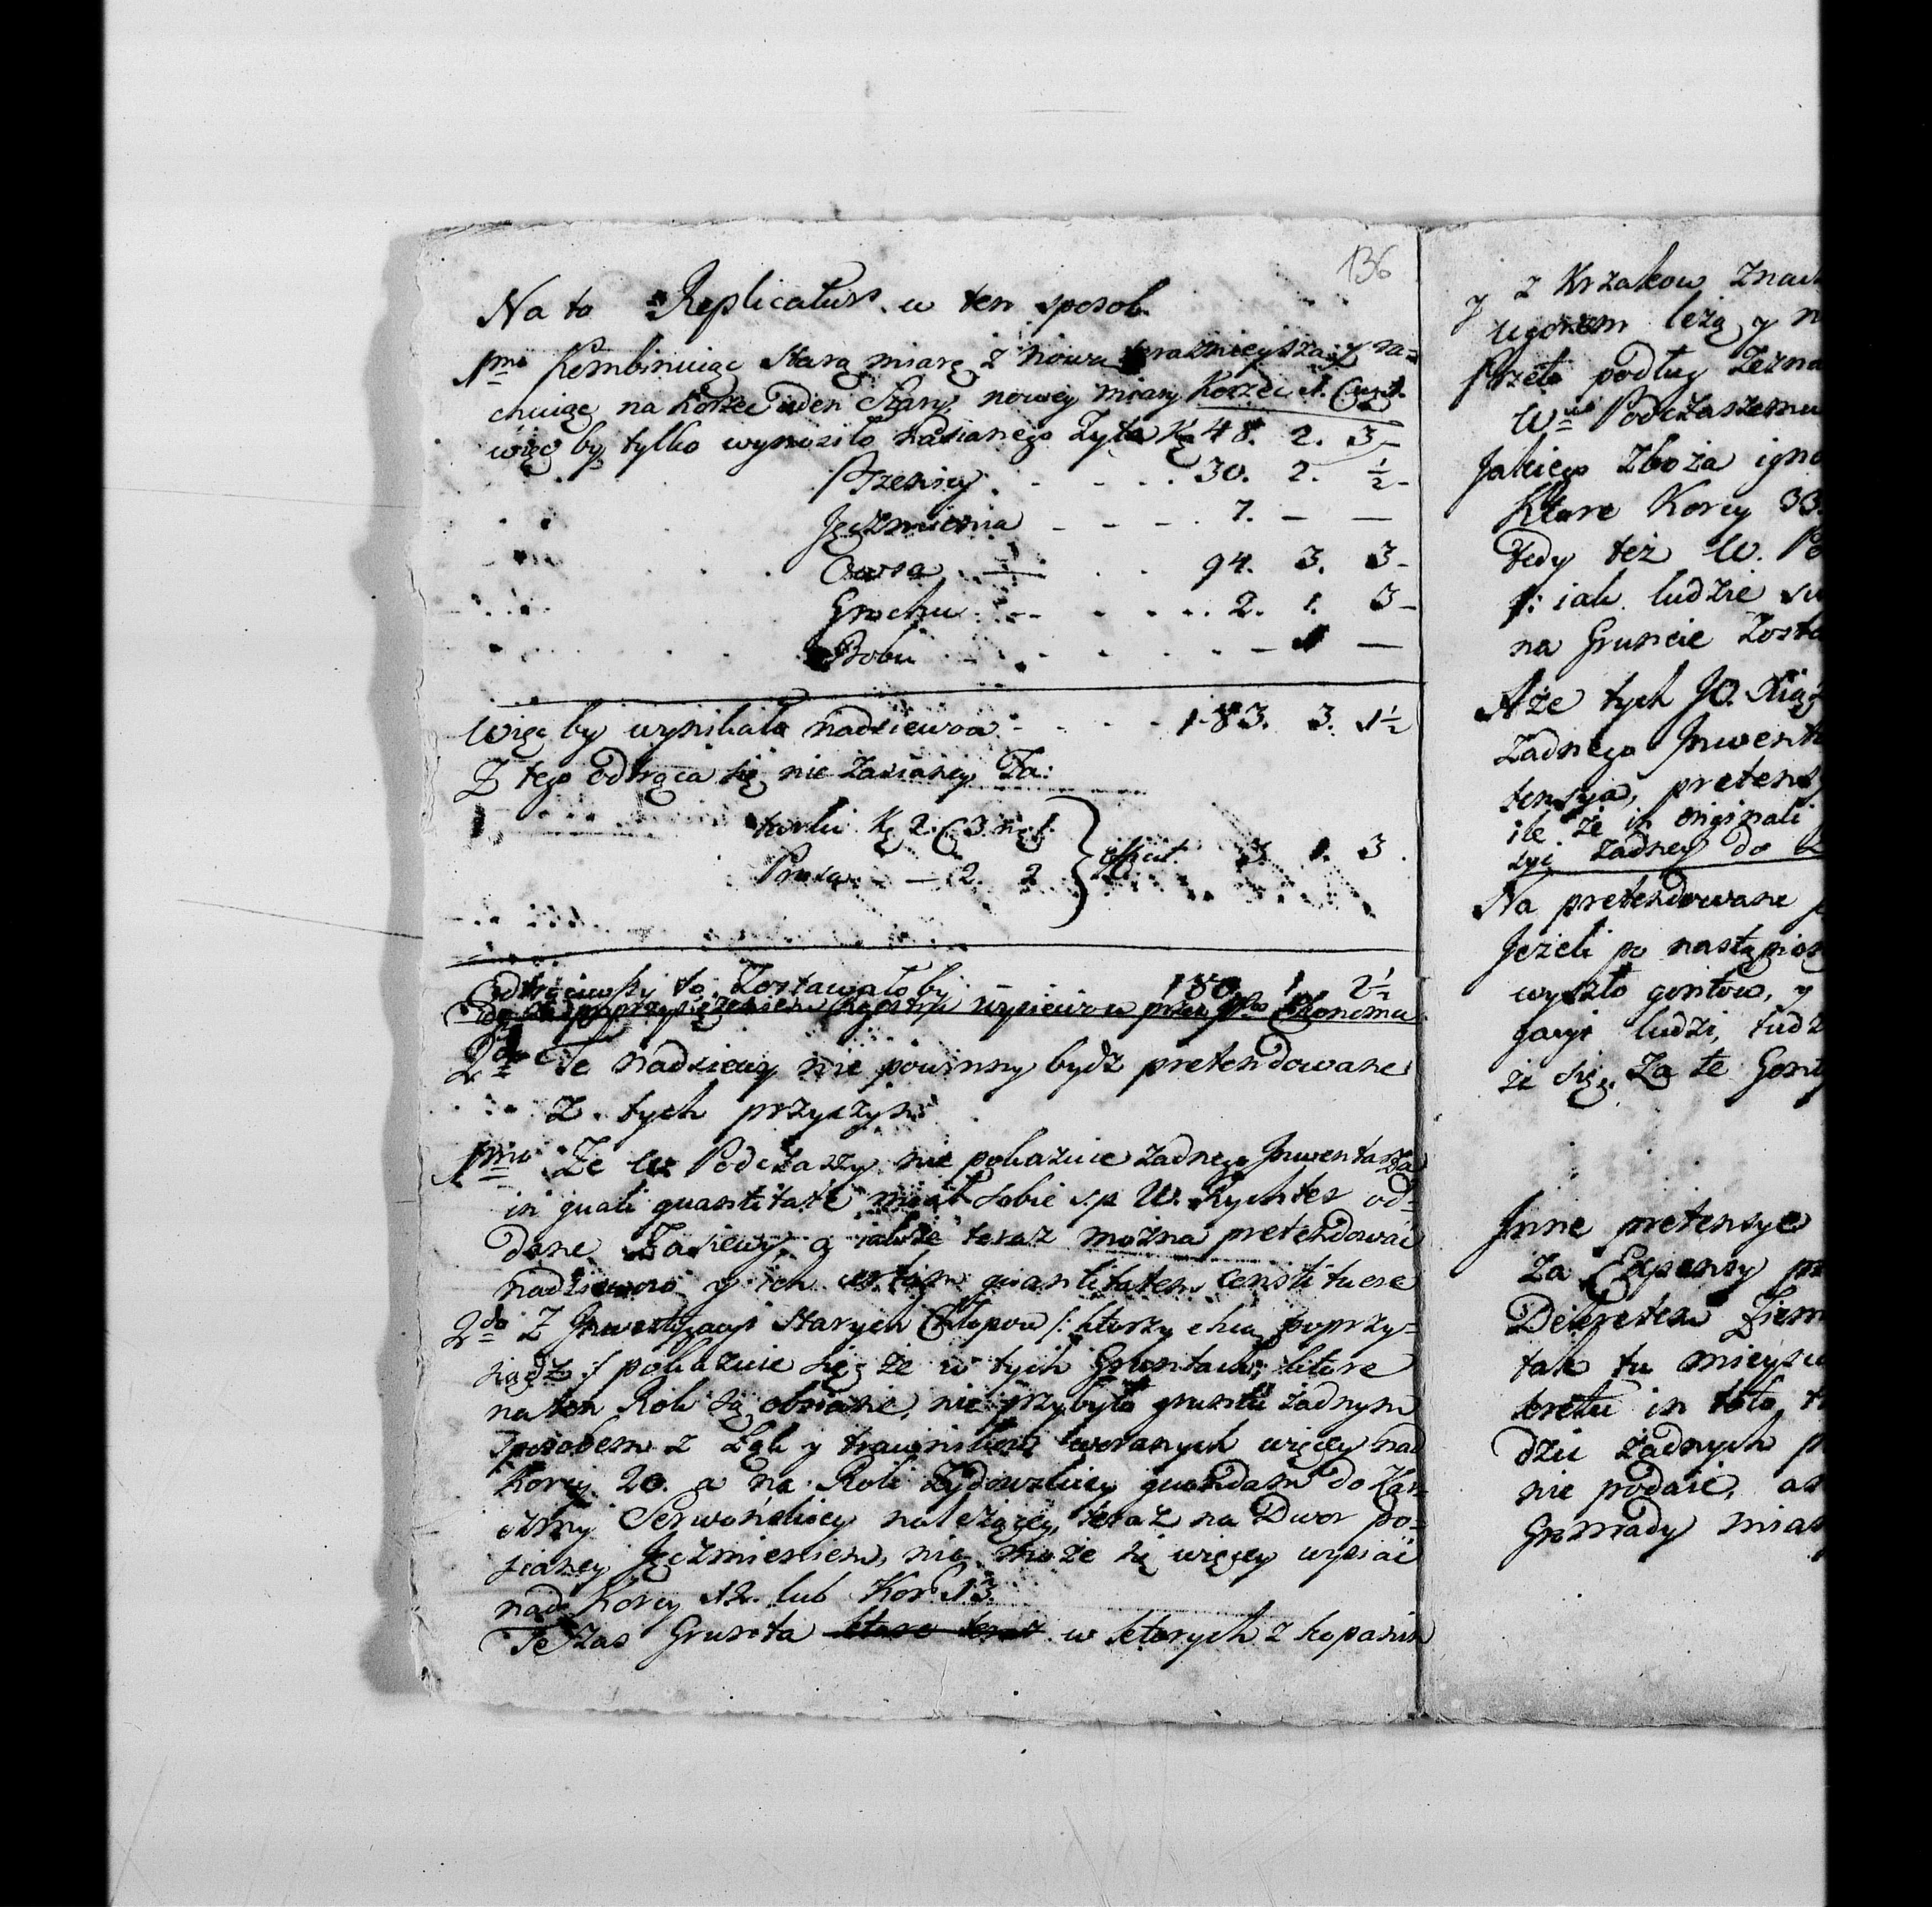 136
Na to Replicatur w ten sposob
1mo Kombinuiąc Starą miarę z nową teraznieyszą y ra=
chuiąc na Korzec ieden Stary, nowey miary Korzec 1. Cwrt.
więc by tylko wynosiło nasianego Zyta Kę 48. 2. 3 -
Pszenicy . - - - . 30. 2. ½ -
Jęczmienia - - - . 7. - -
Owsa - . . 94. 3. 3 -
Grochu - - . . . . 2. 1. 3 -
Bobu - . . . . - 1 -
Więc by wynikało nadsiewow - - - 183. 3. 1½
Z tego odtrąca się nie zasianey Ta:
tarki Kę 2. C 3. 1
Prosa - - 2. 2 } efficit 3. 1. 3.
Odtrąciwszy to Zostawało by 180. 1. 2½
wysiewow przez Ekonoma
2do Te nadsiewy nie powinny bydz pretendowane
z tych przyczyn
1mo Ze W. Podczaszy nie pokazuie zadnego Inwentarza
in quali quantitate miał sobie s.p. W. Rychter od=
dane Zasiewy, a iakże teraz można pretendować
nadsiewow y ich certam quantitatem constituere
2do Z Inwestygacyi Starych Chłopow /: ktorzy chcą poprzy=
siądz :/ pokazuie się że w tych Gruntach, ktore
na ten Rok są obsiane, nie przybyło gruntu żadnym
Sposobem z Łąk y trawnikow tworanych więcey nad
Korcy 20. a na Roli Zydowskiey quondam do Kar=
czmy Serwońskiey nalezącey, teraz na Dwor po=
sianey Jęczmieniem, nie może się więcey wysiać
nad Korcy 12. lub Kor. 13.
Te zas Grunta ktore teraz w ktorych z kopanin
y z Krzakow Znacz
ugorem leżą y n
Przeto podług Zezna
W. Podczaszemu
Jakiego Zboża igno
Ktore Korcy 33.
Tedy też W. Po
/: iak ludzie
na Gruncie Zosta
A że tych JO. Xiąż
żadnego Inwent
tensya, pretens
ile że in originali
syi żadney do
Na pretendowane
Jeżeli po nastąpion
wyszło gontow, y
gacyi ludzi, tudz
że się Za te Gont
Inne pretensye
Za Expensy
Dekretem Ziem
tak tu mieysc
kretu in toto
dzie żadnych p
nie podaie, a
Gromady mias